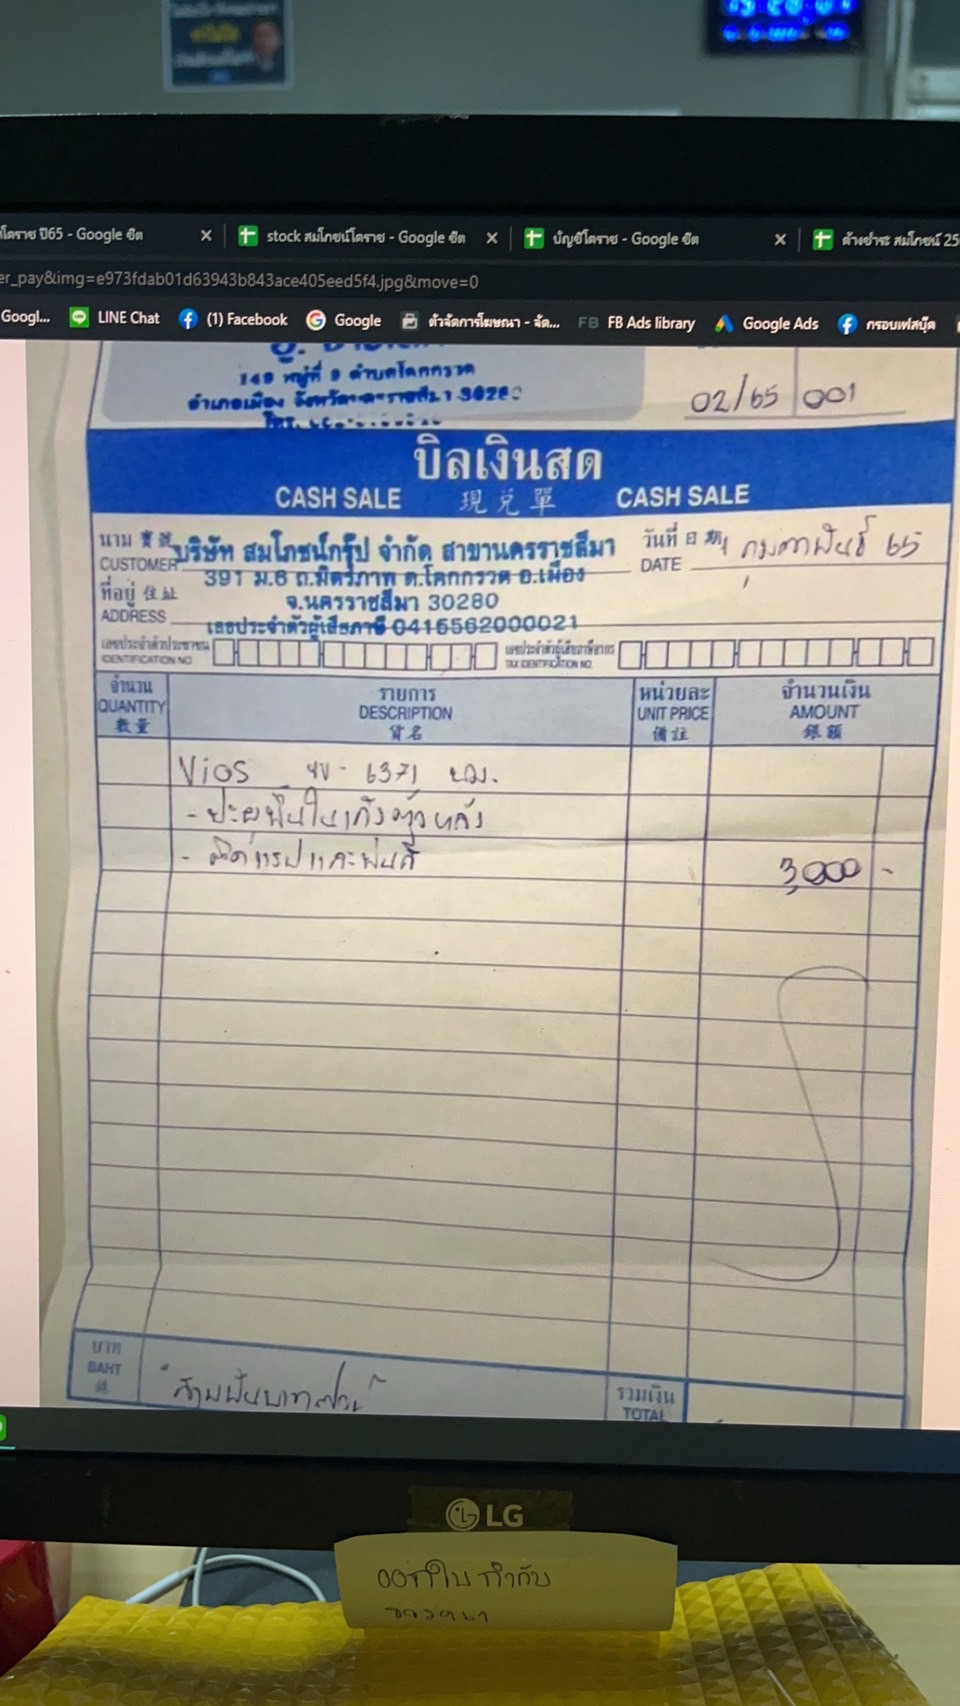 โคราช ปี65 - Google ชีต
stock สมโภชน์โคราช - Google ชีต
บัญชีโคราช - Google ชีต
ค้างชำระ สมโภชน์ 25
er_pay&img=e973fdab01d63943b843ace405eed5f4.jpg&move=0
Googl... LINE Chat (1) Facebook Google ตัวจัดการโฆษณา - จัด... FB FB Ads library Google Ads กรอบเฟสบุ๊ค
149 หมู่ที่ 9 ตำบลโคกกรวด
อำเภอเมือง จังหวัดนครราชสีมา 30280
โทร.
02/65 001
บิลเงินสด
CASH SALE 現兑單 CASH SALE
นาม 寶號 บริษัท สมโภชน์กรุ๊ป จำกัด สาขานครราชสีมา
CUSTOMER 391 ม.6 ถ.มิตรภาพ ต.โคกกรวด อ.เมือง
วันที่ 日期 1 กุมภาพันธ์ 65
DATE
ที่อยู่ 住址 จ.นครราชสีมา 30280
ADDRESS เลขประจำตัวผู้เสียภาษี 0415562000021
เลขประจำตัวประชาชน
IDENTIFICATION NO.
เลขประจำตัวผู้เสียภาษีอากร
TAX IDENTIFICATION NO.
จำนวน
QUANTITY
數量
รายการ
DESCRIPTION
貨名
หน่วยละ
UNIT PRICE
備註
จำนวนเงิน
AMOUNT
銀額
Vios 6371
- ปะผุพื้นในเก๋งตัวหลัง
- และพ่นสี 3,000 -
บาท
BAHT
銖
"สามพันบาทถ้วน"
รวมเงิน
TOTAL
LG
ออกใบกำกับ